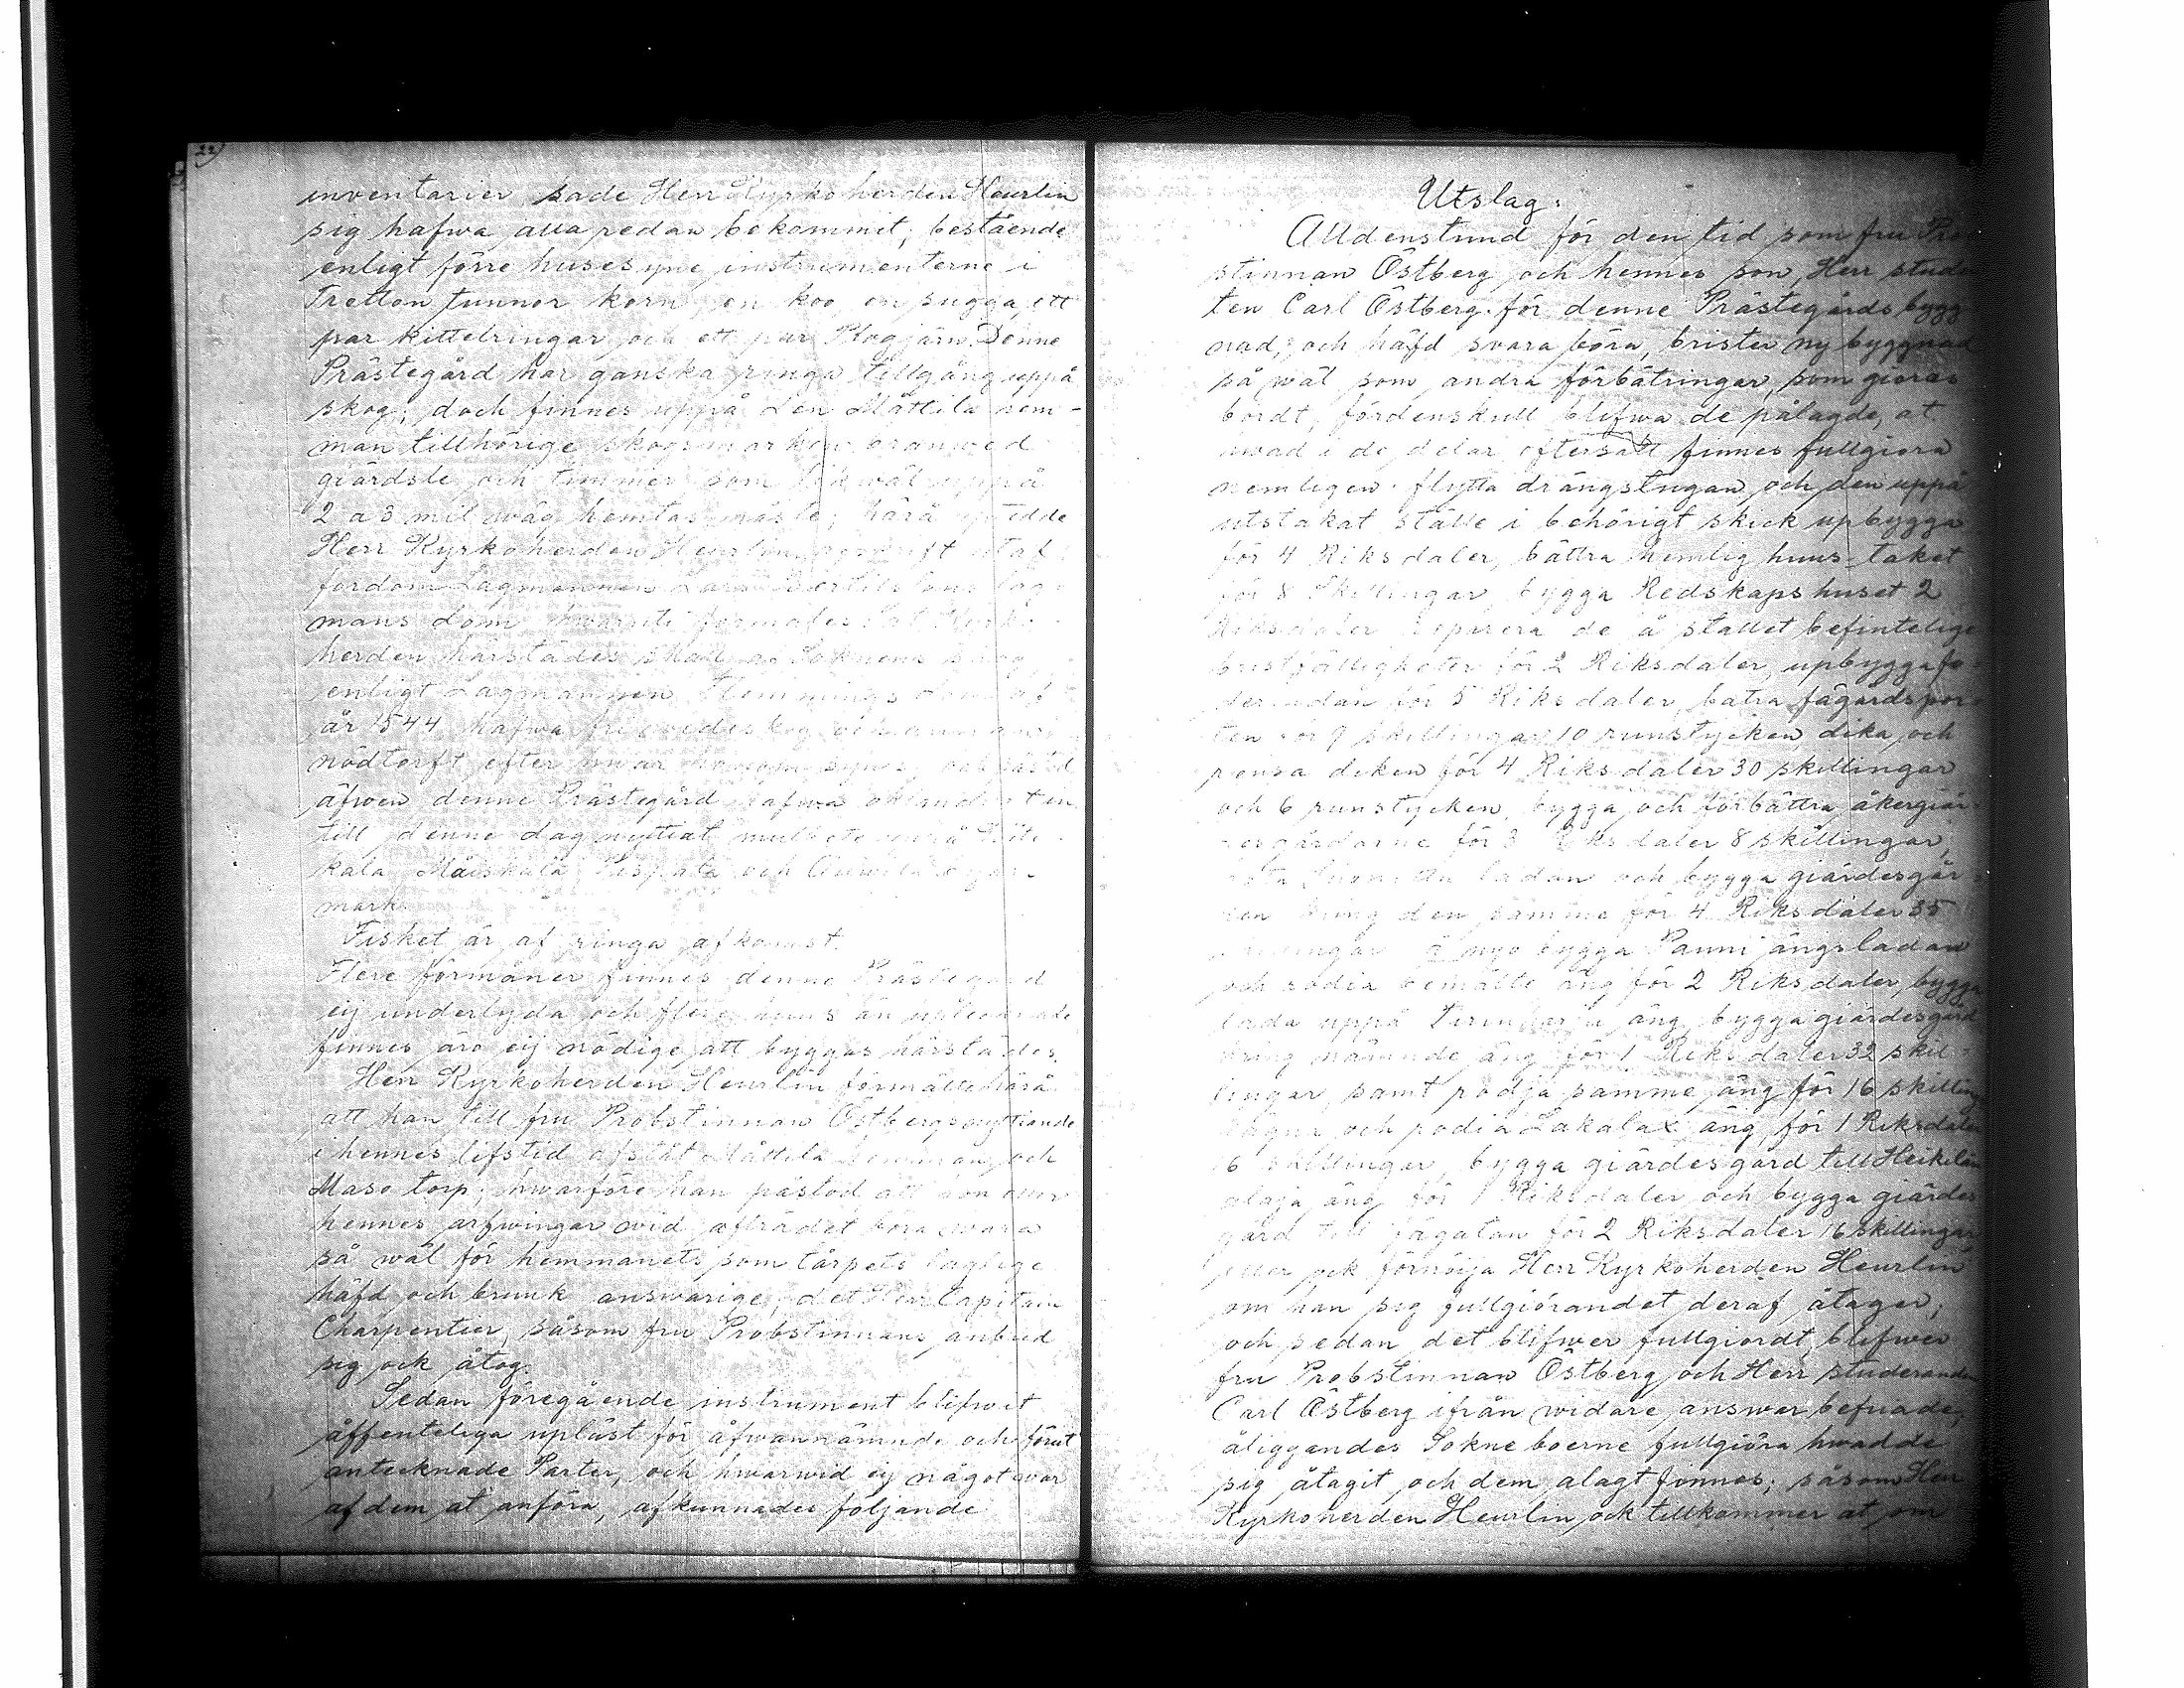 22
inventarier sade Herr Kyrkoherden Heurlin
sig hafwa alla redan bekommit, bestående
enligt förre husesyne instrumenterne i
Tretton tunnor korn, en koo en sugga, ett
par kittelringar och ett par Plogjärn. Denne
Prästegård har ganska ringa tillgång uppå
skog; doch finnes uppå den Mättilä hem-
man tillhörige skogsmarken bränwed
giärdsle och timmer som likwäl uppå
2 a 3 mil wäg hemtas måste; härå tedde
Herr Kyrkoherden Heurlin utaf
fordom Lagmannen Lars lag-
mans dom hwaruti förmäles at Kyrko-
herden härstädes skall af Soknens skog
enligt Lagmannen Flemmings dom af
år 1544 hafwa fri wedeskog och annan
nödtorft efter som synes, och
äfwen denne Prästegård hafwa in
till denne dag nyttiat uppå
kala, Måiskala, och
mark.
Fisket är af ringa afkomst.
Flere förmåner finnes denne Prästegård
eij underlyda och flere huus än upteknade
finnes äro eij nödige att byggas härstädes.
Herr Kyrkoherden Heurlin förmälte härå
att han till fru Probstinnan Östbergs nyttiande
i hennes lifstid afstått Mättilä hemman och
Maso torp; hwarföre han påstod att hon eller
hennes arfwingar wid afträdet böra swara
så wäl för hemmanets som tårpets laglige
häfd och bruuk answarige; det Herr Capitain
Charpentier, såsom fru Probstinnans anbud
sig ock åtog.
Sedan föregående instrument blifwit
åffenteliga upläst för åfwannämnde och förut
antecknade Parter, och hwarwid eij något war
af dem at anföra, afkunnades följande
Utslag.
Alldenstund för den tid som fru Pro
stinnan Östberg och hennes son, Herr stude
ten Carl Östberg för denne Prästegårds bygg
nad, och häfd svara böra, brister ny byggnad
så wäl som andra förbätringar, som giöras
bordt, fördenskull blifwa de pålagde, at
hwad i de delar eftersatt finnes fullgiöra
nemligen: flytta drängstugan och den uppå
utstakat ställe i behörigt skick upbygga
för 4 Riksdaler, bättra hemlig huus taket
för 8 Skillingar, bygga Redskapshuset 2
Riksdaler reparera de å stallet befintelige
bristfälligheter för 2 Riksdaler, upbygga fo
derladan för 5 Riksdaler, bätra fägårdspor
ten för 9 skillingar 10 runstycken, dika och
rensa diken för 4 Riksdaler 30 skillingar
och 6 runstycken, bygga och förbättra åkergiär
desgårdarne för 3 Riksdaler 8 skillingar,
ladan och bygga giärdesgår
den kring den samma för 4 Riksdaler 35
skillingar å nyo bygga Panni ängsladan
och rödia bemälte äng för 2 Riksdaler, bygga
lada uppå äng, bygga giärdesgård
kring nämnde äng för 1 Riksdaler 32 skil
lingar samt rödja samme äng för 16 skilling
och rödia Lakalax äng för 1 Riksdaler
16 skillingar, bygga giärdesgård till Heikilän
alaja äng för 1 Riksdaler och bygga giärdes
gård till fägatan för 2 Riksdaler 16 skillingar
eller ock förnöija Herr Kyrkoherden Heurlin
om han sig fullgiörandet deraf åtager;
och sedan det blifwer fullgiordt, blifwer
fru Probstinnan Östberg och Herr studeranden
Carl Östberg ifrån widare answar befriade,
åliggandes Sokneboerne fullgiöra hwad de
sig åtagit och dem ålagt finnes; såsom Herr
Kyrkoherden Heurlin ock tillkommer at om